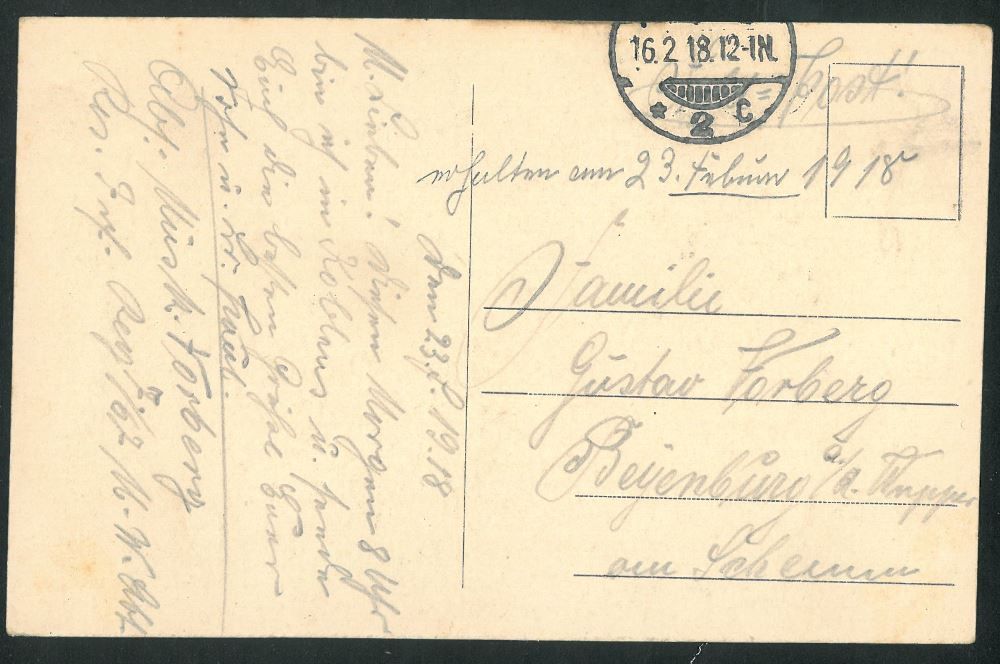 16.2.18.12-1N.
* 2 C
Feld=Post!
erhalten am 23. Februar 1918
Familie
Gustav Forberg
Beyenburg a/d. Wupper
am Schemm
Den 23. 1918
M. Lieben! Diesen Morgen 8 Uhr
bin ich in Koblenz u. sende
Euch die besten Grüße Euer
Sohn u. Br. Paul.
Abs.: Musk. Forberg
Res. Inf. Reg. M. W. Abt.